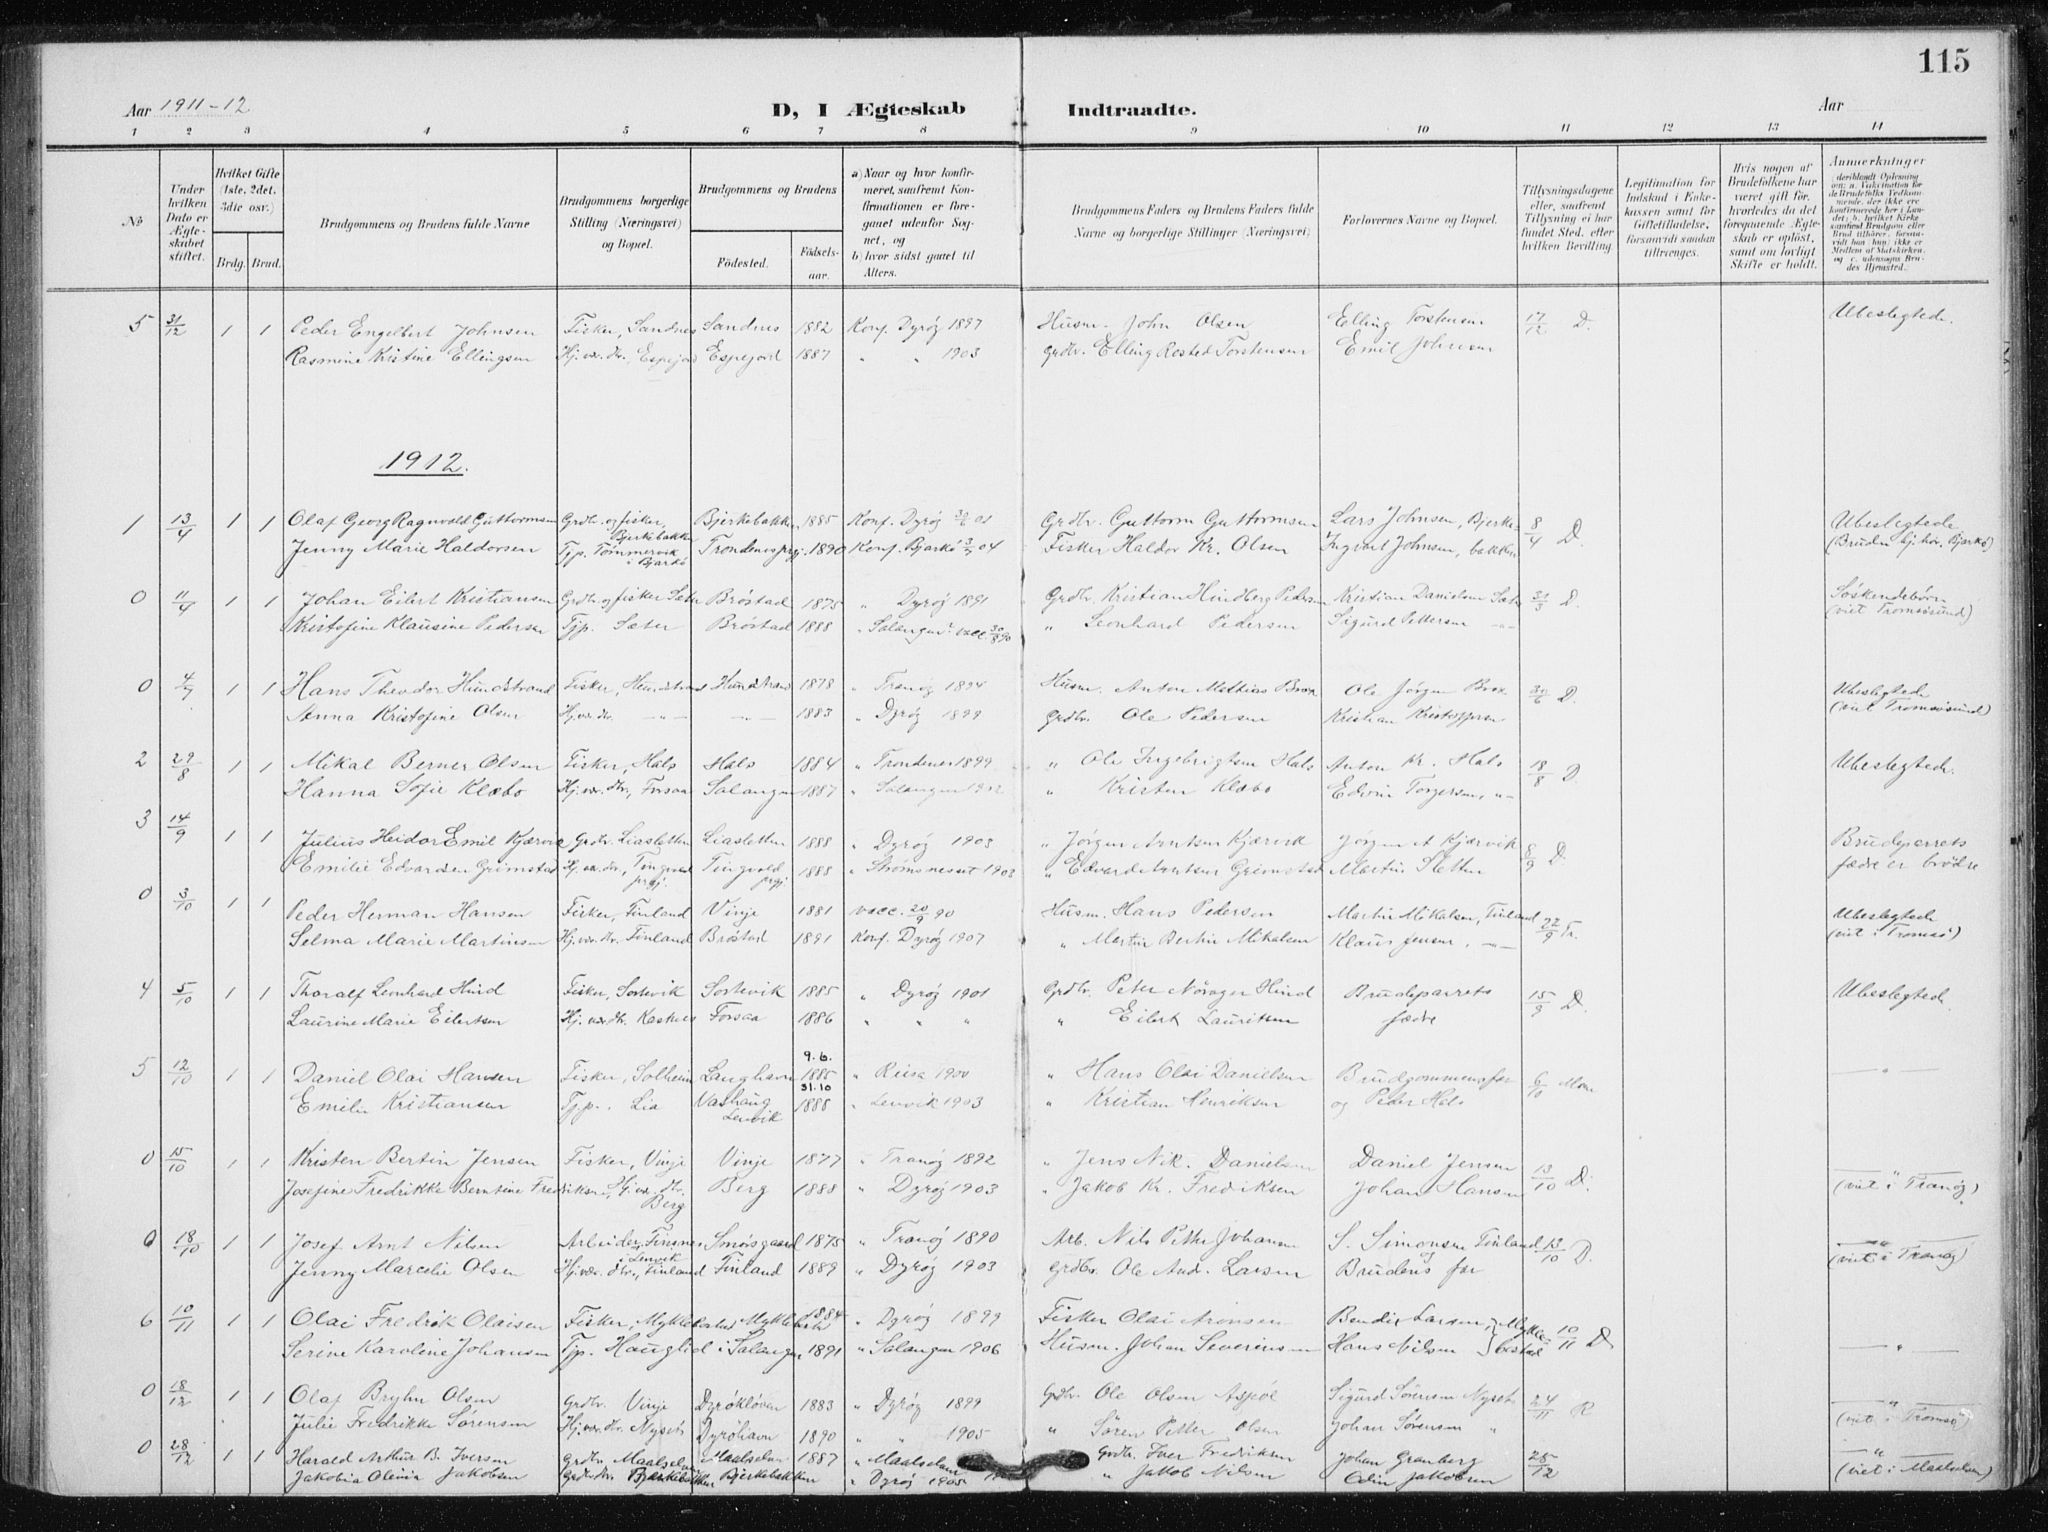 115
Aar 1911-12 D, I Ægteskab Indtraadte. Aar
1 2 3 4 5 6 7 8 9 10 11 12 13 14
No
Under hvilken Dato er Ægteskabet stiftet.
Hvilket Gifte (1ste, 2det, 3die osv.)
Brdg. Brud.
Brudgommens og Brudens fulde Navne
Brudgommens borgerlige Stilling (Næringsvei) og Bopæl.
Brudgommens og Brudens
Fødested. Fødselsaar.
a) Naar og hvor konfirmeret, saafremt Konfirmationen er foregaaet udenfor Sognet, og
b) hvor sidst gaaet til Alters.
Brudgommens Faders og Brudens Faders fulde Navne og borgerlige Stillinger (Næringsvei)
Forlovernes Navne og Bopæl.
Tillysningsdagene eller, saafremt Tillysning ei har fundet Sted, efter hvilken Bevilling.
Legitimation for Indskud i Enkekassen samt for Giftetilladelse, forsaavidt saadan tiltrænges.
Hvis nogen af Brudefolkene har været gift før, hvorledes da det foregaaende Ægteskab er opløst, samt om lovligt Skifte er holdt.
Anmerkninger
5 31/12 1 1 Peder Engelbert Johnsen Fisker, Sandnes Sandnes 1882 Konf. Dyrøy 1897 Husm. John Olsen Elling Torstensen 17/12 D. Ubeslegtede.
Rasmine Kristine Ellingsen Hj.vær. dtr., Espejord Espejord 1887 " " 1903 Grdbr. Elling Rosted Torstensen Emil Johnsen
1912.
1 13/4 1 1 Olaf Georg Ragnvald Guttormsen Grdbr. og fisker, Bjerkebakken Bjerkebakken 1885 Konf. Dyrøy Grdbr. Guttorm Guttormsen Lars Johnsen, Bjerke- 8/4 D. Ubeslegtede.
Jenny Marie Haldorsen Tjp. Tømmervik i Bjarkø Trondenes prgj. 1890 Konf. Bjarkø 04 Fisker Haldor Kr. Olsen Ingvart Johnsen, bakken (Bruden hj.hør. Bjarkø)
0 11/4 1 1 Johan Eilert Kristiansen Grdbr. og fisker Sæter Brøstad 1875 " Dyrøy 1891 Grdbr. Kristian Hindberg Pedersen Kristian Danielsen Sæter 31/3 D. Søskendebørn
Kristofine Klausine Pedersen Tjp. Sæter Brøstad 1888 " Salangen vacc. 30/8 90 " Leonhard Pedersen Sigurd Pettersen -"- (viet Tromsøsund)
0 4/7 1 1 Hans Theodor Hundstrand Fisker, Hundstrand Hundstrand 1878 " Tranøy 1894 Husm. Anton Mathias Brox Ole Jørgen Brox 30/6 D. Ubeslegtede
Anna Kristofine Olsen Hj.vær. dtr. -"- -"- 1883 " Dyrøy 1899 Grdbr. Ole Pedersen Kristian Kristoffersen (viet Tromsøsund)
2 29/8 1 1 Mikal Berner Olsen Fisker, Hals Hals 1884 " Trondenes 1899 " Ole Ingebrigtsen Hals Anton Kr. Hals 18/8 D. Ubeslegtede.
Hanna Sofie Klæbo Hj.vær. dtr., Forsaa Salangen 1887 " Salangen 1902 " Kristen Klæbo Edvin Torgersen, -"-
3 14/9 1 1 Julius Heidor Emil Kjærvik Grdbr. Liasletten Liasletten 1888 " Dyrøy 1903 " Jørgen Arntsen Kjærvik Jørgen A Kjærvik 8/9 D. Brudeparrets
Emilie Edvardsen Grimstad Hj.vær. dtr., Tingvold prgj. Tingvold prgj. 1888 " Strømsneset 1903 " Edvard Arntsen Grimstad Martin Sletten fædre er brødre
0 3/10 1 1 Peder Herman Hansen Fisker, Finland Vinje 1881 vacc. 20/9 90 Husm. Hans Pedersen Martin Mikalsen, Finland 22/9 Tr. Ubeslegtede
Selma Marie Martinsen Hj.vær. dtr. Finland Brøstad 1891 Konf. Dyrøy 1907 " Martin Bertin Mikalsen Klaus Jensen, -"- (viet i Tromsø)
4 5/10 1 1 Thoralf Leonhard Hind Fisker, Sortevik Sortevik 1885 " Dyrøy 1901 Grdbr. Peter Hind Brudeparrets 15/9 D. Ubeslegtede
Laurine Marie Eilertsen Hj.vær. dtr. Kastnes Forsaa 1886 " " " " Eilert Lauritsen fædre
5 12/10 1 1 Daniel Olai Hansen Fisker, Solheim Langhavn 9.6. 1885 " Reisa 1900 " Hans Olai Danielsen Brudgommens far 6/10 -"-
Emilie Kristiansen Tjp., Lia Vanhaug Lenvik 31.10 1888 " Lenvik 1903 " Kristian Henriksen og Peder Hals
0 15/10 1 1 Kristen Bertin Jensen Fisker, Vinje Vinje 1877 " Tranøy 1892 " Jens Nik. Danielsen Daniel Jensen 13/10 D. -"-
Josefine Fredrikke Berntine Fredriksen, Hj.vær. dtr. Berg Berg 1888 " Dyrøy 1903 " Jakob Kr. Fredriksen Johan Hansen (viet i Tranøy)
0 18/10 1 1 Josef Arnt Nilsen Arbeider, Finsnes i Lenvik Smørsgaard 1875 " Tranøy 1890 Arb. Nils Petter Johansen S. Simonsen Finland 13/10 D. -"-
Jenny Marcelie Olsen Hj.vær. dtr., Finland Finland 1889 " Dyrøy 1903 Grdbr. Ole And. Larsen Brudens far (viet i Tranøy)
6 10/11 1 1 Olai Fredrik Olaisen Fisker, Myklebostad Myklebostad 1884 " Dyrøy 1899 Fisker Olai Aronsen Bendik Larsen, Mykle- 10/11 D -"-
Serine Karoline Johansen Tjp. Hauglid i Salangen 1891 " Salangen 1906 Husm. Johan Severinsen Hans Nilsen bostad
0 18/12 1 1 Olaf Bryhn Olsen Grdbr. Vinje Dyrøkløven 1883 " Dyrøy 1899 Grdbr. Ole Olsen Aspøl Sigurd Sørensen Nysæt 24/11 R -"-
Julie Fredrikke Sørensen Hj.vær. dtr. Nysæt Dyrøhavn 1890 " " 1905 " Søren Petter Olsen Johan Sørensen " (viet i Tromsø)
0 28/12 1 1 Harald Arthur B. Iversen Grdbr. Maalselven Maalselven 1887 " Maalselven Grdbr. Iver Fredriksen Johan Granberg 25/12 "
Jakobia Olinia Jakobsen Grdbr.dtr. Bjerkebakken Bjerkebakken " Dyrøy 1905 " Jakob Nilsen Odin Jakobsen (viet i Maalselven)